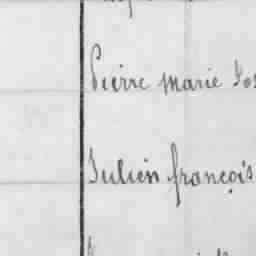 Pierre Marie Jos
Julien françois